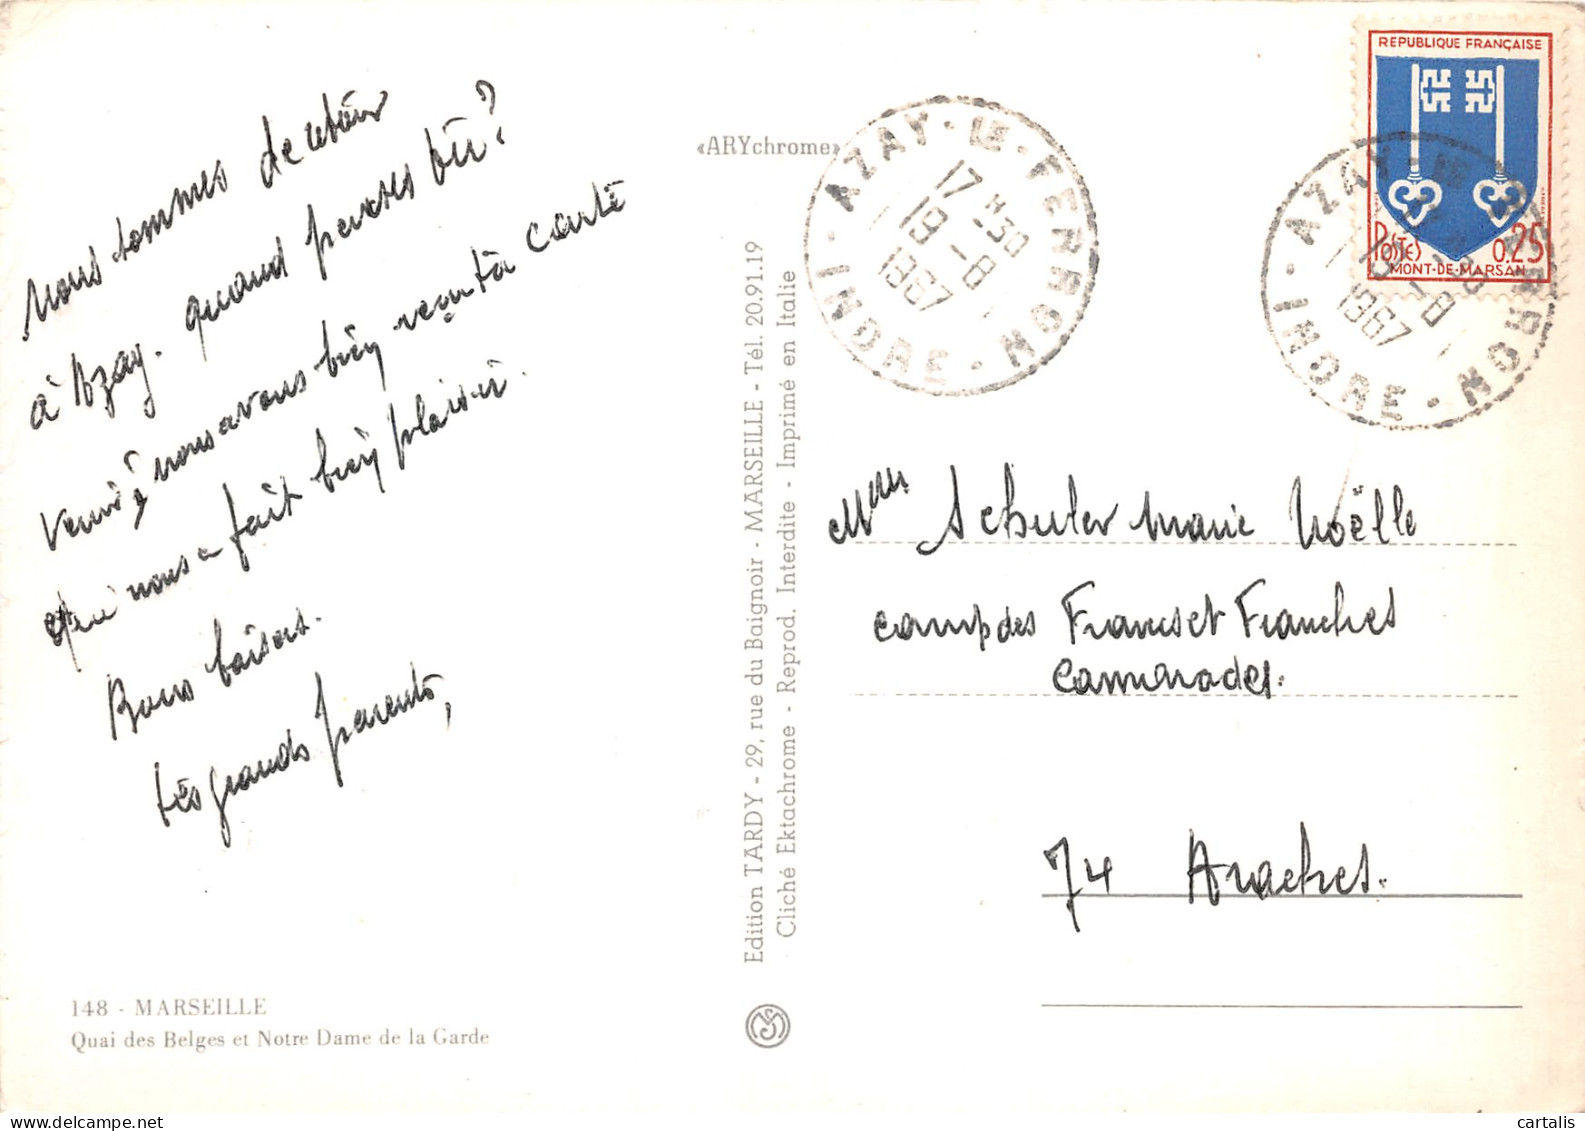 nous sommes de retour
à Azay. quand penses tu?
venir? nous avons bien reçu ta carte
qui nous a fait bien plaisir.
Bons baisers.
tes grands parents,
148 - MARSEILLE
Quai des Belges et Notre Dame de la Garde
«ARYchrome»
Edition TARDY - 29, rue du Baignoir - MARSEILLE - Tél. 20.91.19
Cliché Ektachrome - Reprod. Interdite - Imprimé en Italie
AZAY-LE-FERRON
17H30
19-8
1967
INDRE
REPUBLIQUE FRANÇAISE
POSTES 0.25
MONT-DE-MARSAN
AZAY-LE-FERRON
17H30
19-8
1967
INDRE
Schuler Marie Noëlle
camp des Francs et Franches
Camarades.
74 Araches.
cartalis